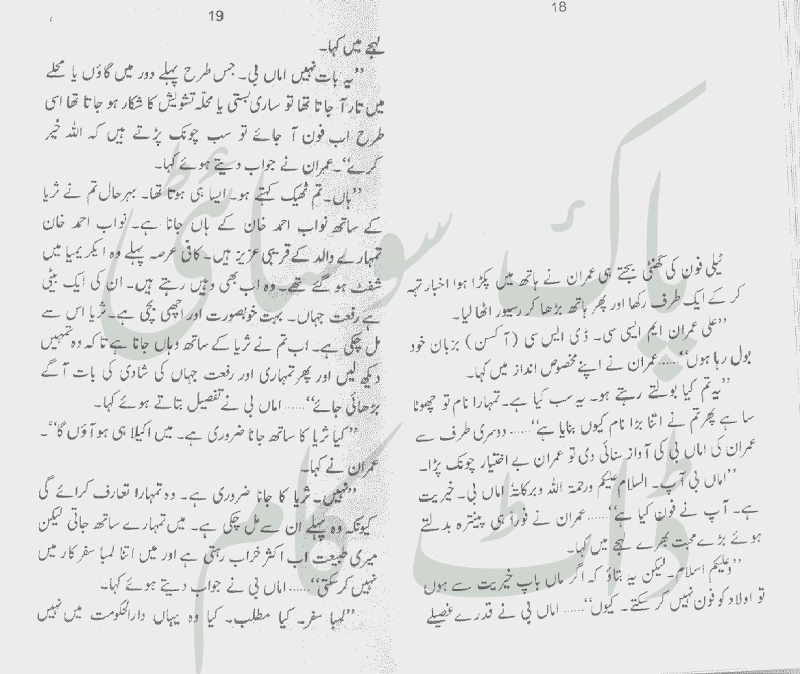 18
ٹیلی فون کی گھنٹی بجتے ہی عمران نے ہاتھ میں پکڑا ہوا اخبار تہہ
کر کے ایک طرف رکھا اور پھر ہاتھ بڑھا کر رسیور اٹھا لیا۔
”علی عمران ایم ایس سی۔ ڈی ایس سی (آکسن) بزبان خود
بول رہا ہوں“..... عمران نے اپنے مخصوص انداز میں کہا۔
”یہ تم کیا بولتے رہتے ہو۔ یہ سب کیا ہے۔ تمہارا نام تو چھوٹا
سا ہے پھر تم نے اتنا بڑا نام کیوں بنایا ہے“..... دوسری طرف سے
عمران کی اماں بی کی آواز سنائی دی تو عمران بے اختیار چونک پڑا۔
”اماں بی آپ۔ السلام علیکم ورحمۃ اللہ وبرکاتہ اماں بی۔ خیریت
ہے۔ آپ نے فون کیا ہے“..... عمران نے فوراً ہی پینترہ بدلتے
ہوئے بڑے محبت بھرے لہجے میں کہا۔
”وعلیکم اسلام۔ لیکن یہ بتاؤ کہ اگر ماں باپ خیریت سے ہوں
تو اولاد کو فون نہیں کر سکتے۔ کیوں“..... اماں بی نے قدرے غصیلے
19
لہجے میں کہا۔
”یہ بات نہیں اماں بی۔ جس طرح پہلے دور میں گاؤں یا محلے
میں تار آ جاتا تھا تو ساری بستی یا محلّہ تشویش کا شکار ہو جاتا تھا اسی
طرح اب فون آ جائے تو سب چونک پڑتے ہیں کہ اللہ خیر
کرے“۔ عمران نے جواب دیتے ہوئے کہا۔
”ہاں۔ تم ٹھیک کہتے ہو۔ ایسا ہی ہوتا تھا۔ بہرحال تم نے ثریا
کے ساتھ نواب احمد خان کے ہاں جانا ہے۔ نواب احمد خان
تمہارے والد کے قریبی عزیز ہیں۔ کافی عرصہ پہلے وہ ایکریمیا میں
شفٹ ہو گئے تھے۔ وہ اب بھی وہیں رہتے ہیں۔ ان کی ایک بیٹی
ہے رفعت جہاں۔ بہت خوبصورت اور اچھی بچی ہے۔ ثریا اس سے
مل چکی ہے۔ اب تم نے ثریا کے ساتھ وہاں جانا ہے تا کہ وہ تمہیں
دیکھ لیں اور پھر تمہاری اور رفعت جہاں کی شادی کی بات آگے
بڑھائی جائے“..... اماں بی نے تفصیل بتاتے ہوئے کہا۔
”کیا ثریا کا ساتھ جانا ضروری ہے۔ میں اکیلا ہی ہو آؤں گا“۔
عمران نے کہا۔
”نہیں۔ ثریا کا جانا ضروری ہے۔ وہ تمہارا تعارف کرائے گی
کیونکہ وہ پہلے ان سے مل چکی ہے۔ میں تمہارے ساتھ جاتی لیکن
میری طبیعت اب اکثر خراب رہتی ہے اور میں اتنا لمبا سفر کار میں
نہیں کر سکتی“..... اماں بی نے جواب دیتے ہوئے کہا۔
”لمبا سفر۔ کیا مطلب۔ کیا وہ یہاں دارالحکومت میں نہیں
پاک سوسائٹی
ڈاٹ کام